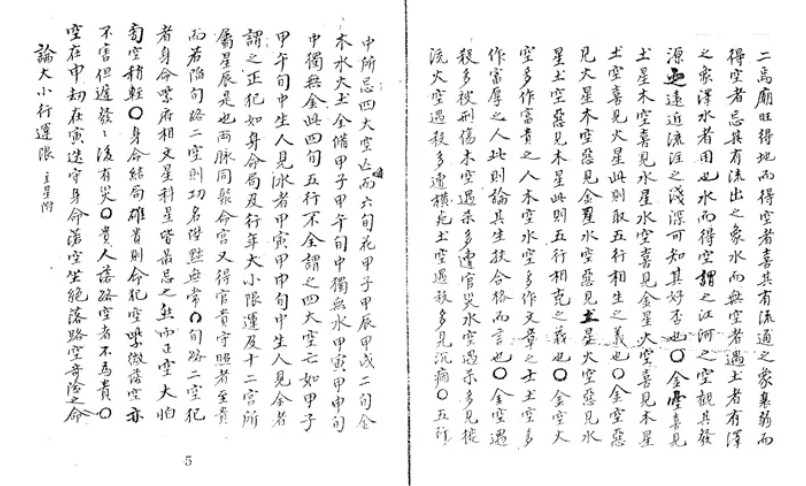 二為廟旺得地而得空者喜其有流通之象衰弱而
得空者忌其有流出之象水而無空者遇土者有澤
之象澤水者用也水而得空謂之江河之空觀其發
源遠近流注之淺深可知其好否也〇金空喜見
土星木空喜見水星水空喜見金星火空喜見木星
土空喜見火星此則取五行相生之義也〇金空惡
見火星木空惡見金星水空惡見土星火空惡見水
星土空惡見木星此則五行相克之義也〇金空火
空多作富貴之人木空水空多作文章之士土空多
作富厚之人此則論其生扶合格而言也〇金空遇
殺多被刑傷木空遇殺多遭官災水空遇殺多見徙
流火空遇殺多遭橫死土空遇殺多見沉痼〇五行
中所忌四大空亡而六旬花甲子甲辰甲戌二旬金
木水火土全備甲子甲午旬中獨無水甲寅甲申旬
中獨無金此四旬五行不全謂之四大空亡如甲子
甲午旬中生人見水者甲寅甲申旬中生人見金者
謂之正犯如身命局及行年大小限運及十二宮所
屬星辰是也兩脉同聚命宮又得官貴守照者至貴
而若陷旬路二空則功名陞黜無常〇旬路二空犯
者身命紫府相文星科星皆最忌之然而正空大怕
旁空稍輕〇身命結局雄貴則命犯空紫微落空亦
不害但遲發〻後有災〇貴人落路空者不為貴〇
空在申劫在寅迭守身命落空坐絕落路空奇險之命
論大小行運限 主星附
5